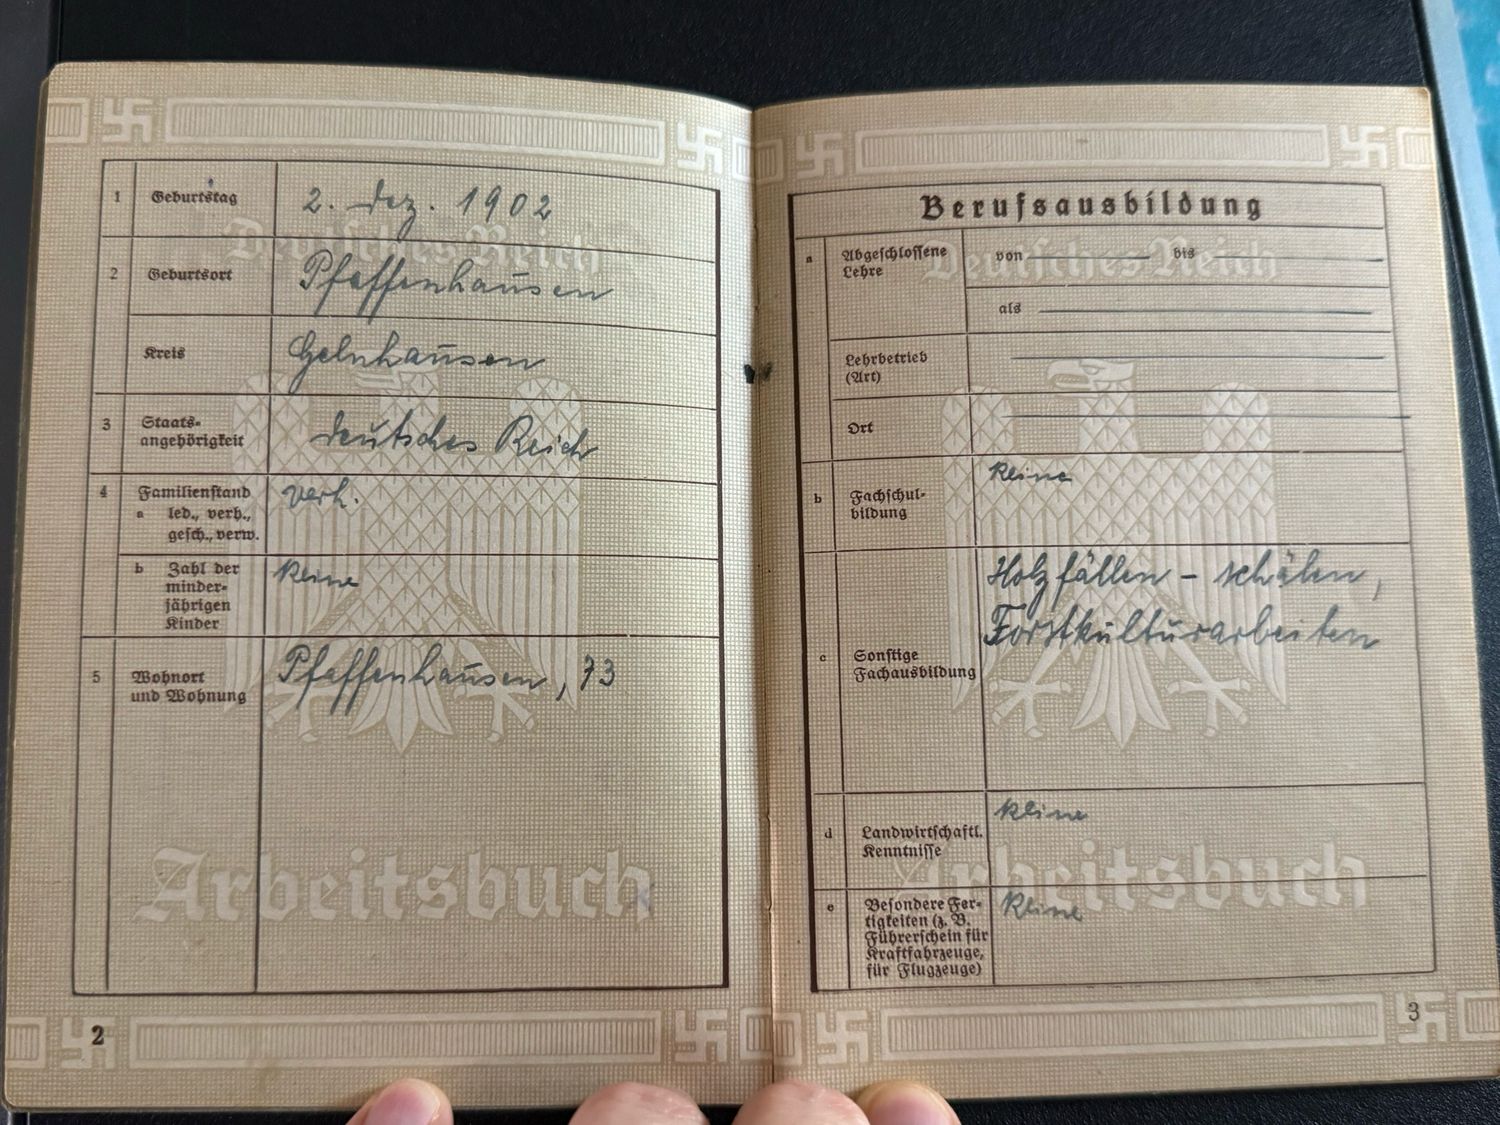 1 Geburtstag 2. Dez. 1902
2 Geburtsort Pfaffenhausen
Kreis Gelnhausen
3 Staats-
angehörigkeit deutsches Reich
4 Familienstand verh.
a led., verh.,
gesch., verw.
b Zahl der keine
minder-
jährigen
Kinder
5 Wohnort Pfaffenhausen, 73
und Wohnung
Deutsches Reich
Arbeitsbuch
2
Berufsausbildung
a Abgeschlossene von bis
Lehre
als
Lehrbetrieb
(Art)
Ort
b Fachschul- keine
bildung
c Sonstige Holzfällen - schälen,
Fachausbildung Forstkulturarbeiten
d Landwirtschaftl. keine
Kenntnisse
e Besondere Fer- keine
tigkeiten (z. B.
Führerschein für
Kraftfahrzeuge,
für Flugzeuge)
Deutsches Reich
Arbeitsbuch
3